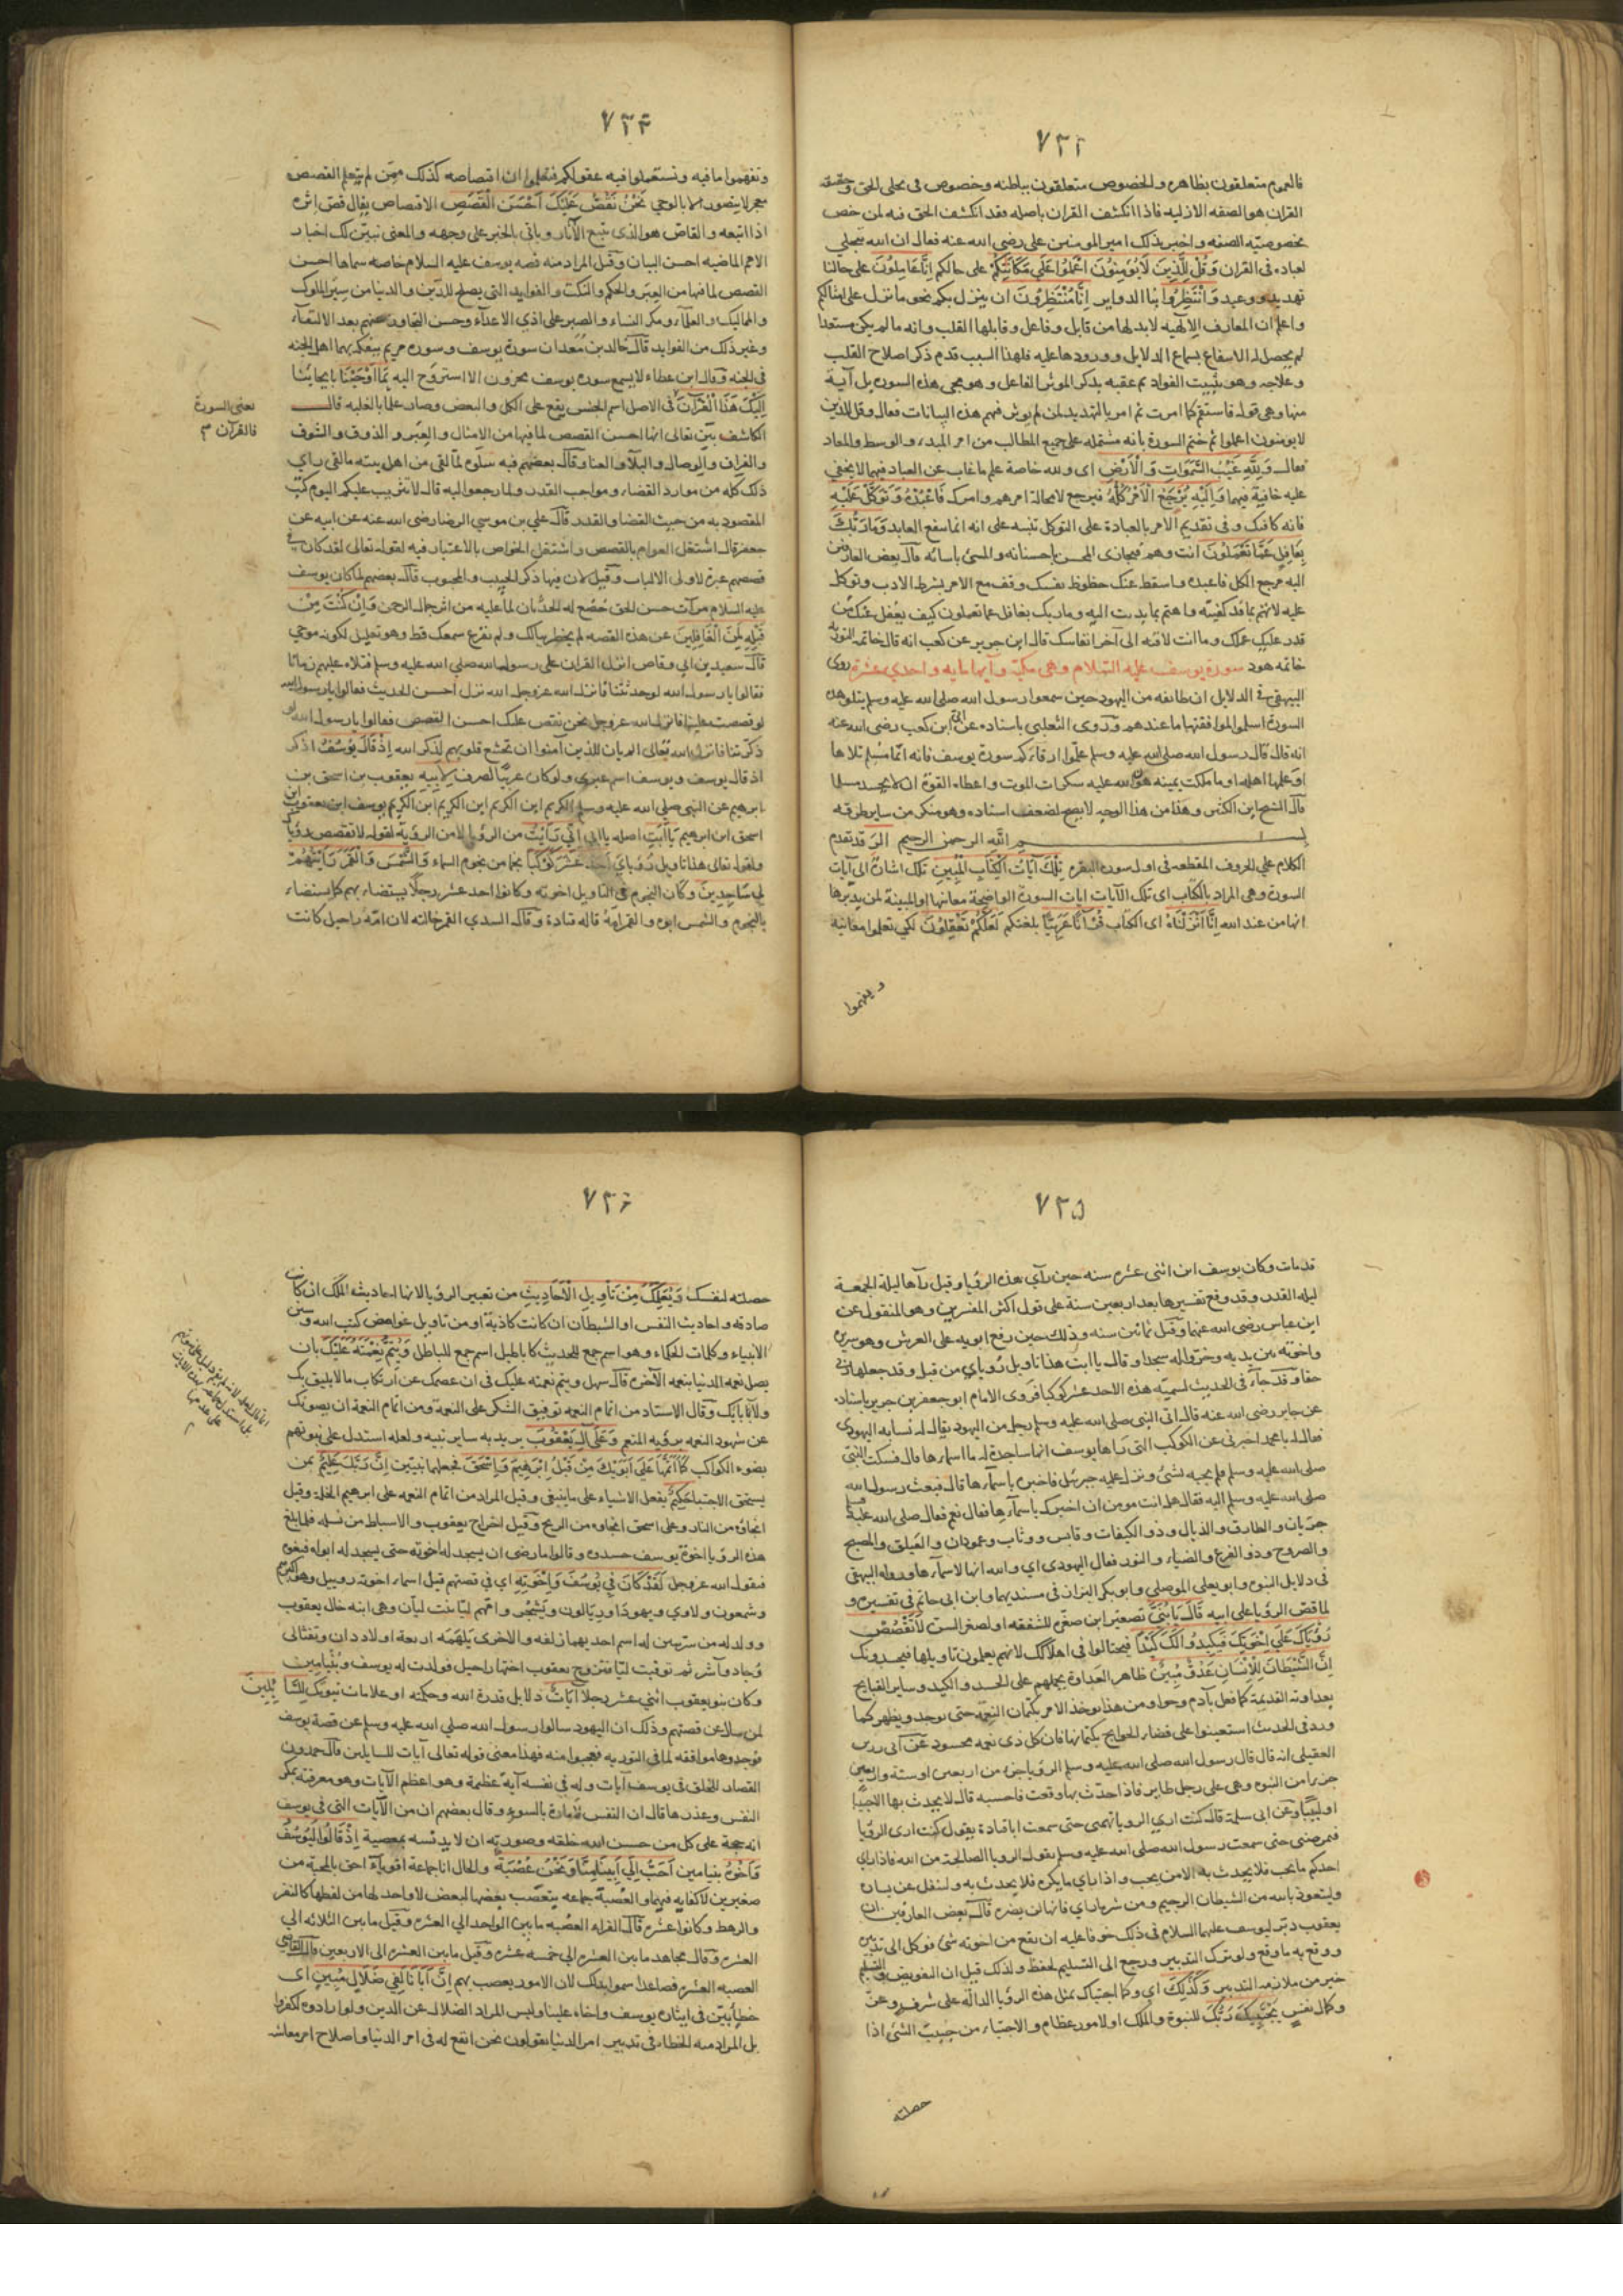 ٧٢٣
فالعموم متعلقون بظاهره والخصوص متعلقون بباطنه وخصوص في محلى الحق وحقيقة
القران هو الصفه الازليه فاذا انكشف القران باصله فقد انكشف الحق فيه لمن خص
بخصوصيته الصفه واخبر بذلك امير المومنين على رضى الله عنه فقال ان الله يتجلى
لعباده فى القران وَقُل لِلَّذِينَ لَا يُؤمِنُونَ اعْمَلُوا عَلَى مَكَانَتِكُمْ على حالكم اِنَّا عَامِلُونَ على حالنا
تهديد ووعيد وَانْتَظِرُوا بنا الدواير اِنَّا مُنْتَظِرُونَ ان ينزل بكم نحو ما نزل على امثالكم
واعلم ان المعارف الالهيه لابد لها من قابل وفاعل وقابلها القلب وانه ما لم يكن مستعدا
لم يحصل له الانتفاع بسماع الدلايل وورودها عليه فلهذا السبب قدم ذكر اصلاح القلب
وعلاجه وهو تثبيت الفواد ثم عقبه بذكر الموثر الفاعل وهو مجى هذه السوره بل آية
منها وهى قوله فاستقم كما امرت ثم امر بالتهديد لمن لم يوثر فيهم هذه البيانات فقال وقل للذين
لا يومنون اعملوا ثم ختم السورة بانه مشتمله على جميع المطالب من امر المبدء والوسط والمعاد
فقال وَلِلَّهِ غَيْبُ السَّمَوَاتِ وَالْأَرْضِ اى ولله خاصة علم ما غاب عن العباد فيهما لا يخفى
عليه خافية فيهما وَاِلَيْهِ يُرْجَعُ الْأَمْرُ كُلُّهُ فيرجع لا محالة امرهم وامرك فَاعْبُدْهُ وَتَوَكَّلْ عَلَيْهِ
فانه كافيك وفى تقديم الامر بالعبادة على التوكل تنبيه على انه انما ينفع العابد وَمَا رَبُّكَ
بِغَافِلٍ عَمَّا تَعْمَلُونَ انت وهم فيجازى المحسن باحسانه والمسئ باساته قال بعض العارفين
اليه مرجع الكل فاعبده واسقط عنك حظوظ نفسك وقف مع الامر بشرط الادب وتوكل
عليه لاتهتم بما قد كفيته واهتم بما يدبت اليه وما ربك بغافل عما تعملون كيف يغفل عنك من
قدر عليك عملك وما انت لاقه الى آخر انفاسك قال ابن جرير عن كعب انه قال خاتمه التورية
خاتمه هود سورة يوسف عليه السلام وهى مكية وآيها مايه واحدى عشرة روى
البيهقى فى الدلايل ان طائفه من اليهود حين سمعوا رسول الله صلى الله عليه وسلم يتلو هذه
السورة اسلموا لموافقتها ما عندهم وروى الثعلبى باسناده عن ابى ابن كعب رضى الله عنه
انه قال قال رسول الله صلى الله عليه وسلم علموا ارقاءكم سورة يوسف فانه ايما مسلم تلاها
او علمها اهله او ما ملكت يمينه هون الله عليه سكرات الموت واعطاه القوة ان لا يحسد مسلما
قال الشيخ ابن الكثير وهذا من هذا الوجه لا يصح لضعف اسناده وهو منكر من ساير طرقه
بسم الله الرحمن الرحيم الر قد تقدم
الكلام على الحروف المقطعه فى اول سوره البقره تِلْكَ آيَاتُ الْكِتَابِ الْمُبِينِ تلك اشارة الى آيات
السورة وهى المراد بالكتاب اى تلك الآيات ايات السورة الواضحة معانيها او المبينة لمن يدبرها
انها من عند الله اِنَّا اَنْزَلْنَاهُ اى الكتاب قُرْآنًا عَرَبِيًّا بلغتكم لَعَلَّكُمْ تَعْقِلُونَ لكى تعلموا معانيه
وتفهموا
٧٢٤
وتفهموا ما فيه وتستعملوا فيه عقولكم فتعلموا ان اقتصاصه كذلك ممن لم يتعلم القصص
معجز لا يتصور الا بالوحى نَحْنُ نَقُصُّ عَلَيْكَ اَحْسَنَ الْقَصَصِ الاقتصاص يقال قص اثره
اذا اتبعه والقاص هو الذى يتبع الآثار وياتى بالخبر على وجهه والمعنى نبين لك اخبار
الامم الماضيه احسن البيان وقيل المراد منه قصه يوسف عليه السلام خاصه سماها احسن
القصص لما فيها من العبر والحكم والنكت والفوايد التى يصلح للدين والدنيا من سير الملوك
والمماليك والعلماء ومكر النساء والصبر على اذى الاعداء وحسن التجاوز عنهم بعد الالتقاء
وغير ذلك من الفوايد قال خالد بن معدان سورة يوسف وسوره مريم يتفكه بهما اهل الجنه
فى الجنه وقال ابن عطاء لا يسمع سوره يوسف محزون الا استروح اليه بِمَا اَوْحَيْنَا بايحائنا
اِلَيْكَ هَذَا الْقُرْآنَ فى الاصل اسم الجنس يقع على الكل والبعض وصار علما بالغلبه قال
الكاشف بين تعالى انها احسن القصص لما فيها من الامثال والعبر والذوق والشوق
والفراق والوصال والبلاء والعنا وقال بعضهم فيه سلوه لما لقى من اهل بيته ما لقى راى
ذلك كله من موارد القضاء ومواجب القدر ولما رجعوا اليه قال لا تثريب عليكم اليوم كتب
المقصود به من حيث القضا والقدر قال على بن موسى الرضا رضى الله عنه عن ابيه عن
جعفر قال اشتغل العوام بالقصص واشتغل الخواص بالاعتبار فيه لقوله تعالى لقد كان فى
قصصهم عبرة لاولى الالباب وقيل لان فيها ذكر الحبيب والمحبوب قال بعضهم لما كان يوسف
عليه السلام مرآت حسن الحق خضع له الحدثان لما عليه من اثر جمال الرحمن وَاِنْ كُنْتَ مِنْ
قَبْلِهِ لَمِنَ الْغَافِلِينَ عن هذه القصه لم يخطر ببالك ولم تقرع سمعك قط وهو تعليل لكونه موحى
قال سعيد بن ابى وقاص انزل القران على رسول الله صلى الله عليه وسلم فتلاه عليهم زمانا
فقالوا يا رسول الله لو حدثتنا فانزل الله عز وجل الله نزل احسن الحديث فقالوا يا رسول الله
لو قصصت علينا فانزل الله عز وجل نحن نقص عليك احسن القصص فقالوا يا رسول الله لو
ذكرتنا فانزل الله تعالى الم يان للذين آمنوا ان تخشع قلوبهم لذكر الله اِذْ قَالَ يُوسُفُ اذكر
اذ قال يوسف ويوسف اسم عبرى ولو كان عربيا لصرف لِاَبِيهِ يعقوب بن اسحق بن
ابرهيم عن النبى صلى الله عليه وسلم الكريم ابن الكريم ابن الكريم ابن الكريم يوسف ابن يعقوب ابن
اسحق ابن ابرهيم يَا اَبَتِ اصله يا ابى اِنِّى رَاَيْتُ من الرؤيا لا من الرؤية لقوله لا تقصص رؤياك
ولقوله تعالى هذا تاويل رؤياى اَحَدَ عَشَرَ كَوْكَبًا نجما من نجوم السماء وَالشَّمْسَ وَالْقَمَرَ رَاَيْتُهُمْ
لِى سَاجِدِينَ وكان النجوم فى التاويل اخوته وكانوا احد عشر رجلا يستضاء بهم كما يستضاء
بالنجوم والشمس ابوه والقمر امه قاله قتاده وقال السدى القمر خالته لان امه راحيل كانت
يعنى السورة
فالقرآن م
٧٢٥
قد مات وكان يوسف ابن اثنى عشره سنه حين رآى هذه الرؤيا وقيل رآها ليلة الجمعة
ليله القدر وقد وقع تفسيرها بعد اربعين سنة على قول اكثر المفسرين وهو المنقول عن
ابن عباس رضى الله عنهما وقيل ثمانين سنه وذلك حين رفع ابويه على العرش وهو سريره
واخوته بين يديه وخروا له سجدا وقال يا ابت هذا تاويل رؤياى من قبل قد جعلها ربى
حقا وقد جآء فى الحديث تسمية هذه الاحد عشر كوكبا فروى الامام ابو جعفر بن جرير باسناده
عن جابر رضى الله عنه قال اتى النبى صلى الله عليه وسلم رجل من اليهود يقال له بستانه اليهودى
فقال له يا محمد اخبرنى عن الكوكب التى رآها يوسف انها ساجدة له ما اسماءها قال فسكت النبى
صلى الله عليه وسلم فلم يجبه بشئ ونزل عليه جبرئيل فاخبره باسمآءها قال فبعث رسول الله
صلى الله عليه وسلم اليه فقال هل انت مومن ان اخبرتك باسمآءها فقال نعم فقال صلى الله عليه وسلم
جريان والطارق والذيال وذو الكتفات وقابس ووثاب وعمودان والفيلق والمصبح
والصروح وذو الفرغ والضياء والنور فقال اليهودى اى والله انها لاسمآءها ورواه البيهقى
فى دلايل النبوه وابو يعلى الموصلى وابو بكر البزار فى مسنديهما وابن ابى حاتم فى تفسيره و
لما قص الرؤيا على ابيه قَالَ يَا بُنَىَّ تصغير ابن صغره للشفقه او لصغر السن لَا تَقْصُصْ
رُؤْيَاكَ عَلَى اِخْوَتِكَ فَيَكِيدُوا لَكَ كَيْدًا فيحتالوا فى اهلاكك لانهم يعلمون تاويلها فيحسدونك
اِنَّ الشَّيْطَانَ لِلْاِنْسَانِ عَدُوٌّ مُبِينٌ ظاهر العداوة يحملهم على الحسد والكيد وساير القبايح
بعداوته القديمة كما فعل بآدم وحوا ومن هذا يوخذ الامر بكتمان النعمة حتى يوجد ويظهر كما
ورد فى الحديث استعينوا على قضاء الحوايج بكتمانها فان كل ذى نعمه محسود عن ابى رزين
العقيلى انه قال قال رسول الله صلى الله عليه وسلم الرؤيا جزء من اربعين او ستة واربعين
جزءا من النبوه وهى على رجل طاير فاذا حدث بها وقعت فاحسبه قال لا يحدث بها الا حبيبا
او لبيبا وعن ابى سلمة قال كنت ارى الرويا تهمنى حتى سمعت ابا قتادة يقول كنت ارى الرؤيا
فيمرضنى حتى سمعت رسول الله صلى الله عليه وسلم يقول الرويا الصالحة من الله فاذا راى
احدكم ما يحب فلا يحدث به الا من يحب واذا راى ما يكره فلا يحدث به وليتفل عن يساره
وليتعوذ بالله من الشيطان الرجيم ومن شر ما راى فانها لن يضره قال بعض العارفين ان
يعقوب دبر ليوسف عليهما السلام فى ذلك خوفا عليه ان يقع من اخوته شئ فوكل الى تدبيره
ووقع به ما وقع ولو ترك التدبير ورجع الى التسليم لحفظ ولذلك قيل ان التفويض والتسليم
خير من ملازمه التدبير وَكَذَلِكَ اى وكما اجتباك بمثل هذه الرؤيا الدالة على شرف وعز
وكمال نفس يَجْتَبِيكَ رَبُّكَ للنبوة والملك او لامور عظام والاجتباء من جبيت الشئ اذا
حصلته
٧٢٦
حصلته لنفسك وَيُعَلِّمُكَ مِنْ تَأْوِيلِ الْأَحَادِيثِ من تعبير الرؤيا لانها احاديث الملك ان كانت
صادقه واحاديث النفس او الشيطان ان كانت كاذبة او من تاويل غوامض كتب الله وسنن
الانبياء وكلمات الحكماء وهو اسم جمع للحديث كاباطيل اسم جمع للباطل وَيُتِمُّ نِعْمَتَهُ عَلَيْكَ بان
يصل نعمه الدنيا بنعمه الآخره قال سهل ويتم نعمته عليك فى ان عصمك عن ارتكاب ما لا يليق بك
ولا بابائك وقال الاستاد من اتمام النعمه توفيق الشكر على النعمة ومن اتمام النعمة ان يصونك
عن شهود النعمه برؤيه المنعم وَعَلَى آلِ يَعْقُوبَ يريد به ساير بنيه ولعله استدل على نبوتهم
بضوء الكواكب كَمَا اَتَمَّهَا عَلَى اَبَوَيْكَ مِنْ قَبْلُ اِبْرَهِيمَ وَاِسْحَقَ فجعلهما نبيين اِنَّ رَبَّكَ عَلِيمٌ بمن
يستحق الاجتبا حَكِيمٌ بفعل الاشياء على ما ينبغى وقيل المراد من اتمام النعمه على ابرهيم الخلة وقيل
انجاؤه من النار وعلى اسحق انجاوه من الذبح وقيل اخراج يعقوب والاسباط من نسله فلما بلغ
هذه الرؤيا اخوة يوسف حسدوه وقالوا ما رضى ان يسجد له اخوته حتى يسجد له ابواه فبغوه
فيقول الله عز وجل لَقَدْ كَانَ فِى يُوسُفَ وَاِخْوَتِهِ اى فى قصتهم قيل اسماء اخوته روبيل وهو اكبرهم
وشمعون ولاوى ويهودا وريالون ويشجر وامهم ليا بنت ليان وهى ابنه خال يعقوب
وولد له من سريتين له اسم احديهما زلفه والاخرى يلهمه اربعة اولاد دان ونفثالى
وجاد وآشر ثم توفيت ليا فتزوج يعقوب اختها راحيل فولدت له يوسف وبنيامين
وكان بنو يعقوب اثنى عشر رجلا آيَاتٌ دلايل قدرة الله وحكمته او علامات نبوتك لِلسَّائِلِينَ
لمن سال عن قصتهم وذلك ان اليهود سالوا رسول الله صلى الله عليه وسلم عن قصة يوسف
فوجدوها موافقه لما فى التوريه فعجبوا منه فهذا معنى قوله تعالى آيات للسايلين قال حمدون
القصار للخلق فى يوسف آيات وله فى نفسه آية عظيمة وهو اعظم الآيات وهو معرفته بمكر
النفس وغدرها قال ان النفس لامارة بالسوء وقال بعضهم ان من الآيات التى فى يوسف
انه حجة على كل من حسن الله خلقه وصورته ان لا يدنسه بمعصية اِذْ قَالُوا لَيُوسُفُ
وَاَخُوهُ بنيامين اَحَبُّ اِلَى اَبِينَا مِنَّا وَنَحْنُ عُصْبَةٌ والحال انا جماعة اقوياء احق بالمحبة من
صغيرين لا كفايه فيهما والعصبة جماعه يتعصب بعضها لبعض لا واحد لها من لفظها كالنفر
والرهط وكانوا عشره قال الفراء العصبه ما بين الواحد الى العشره وقيل ما بين الثلاثه الى
العشره وقال مجاهد ما بين العشره الى خمسه عشره وقيل ما بين العشره الى الاربعين قال القاضى
العصبه العشره فصاعدا سموا بذلك لان الامور يعصب بهم اِنَّ اَبَانَا لَفِى ضَلَالٍ مُبِينٍ اى
خطأ بين فى ايثاره يوسف واخاه علينا وليس المراد الضلال عن الدين ولو ارادوه لكفروا
بل المراد منه الخطاء فى تدبير امر الدنيا يقولون نحن انفع له فى امر الدنيا واصلاح امر معاشه